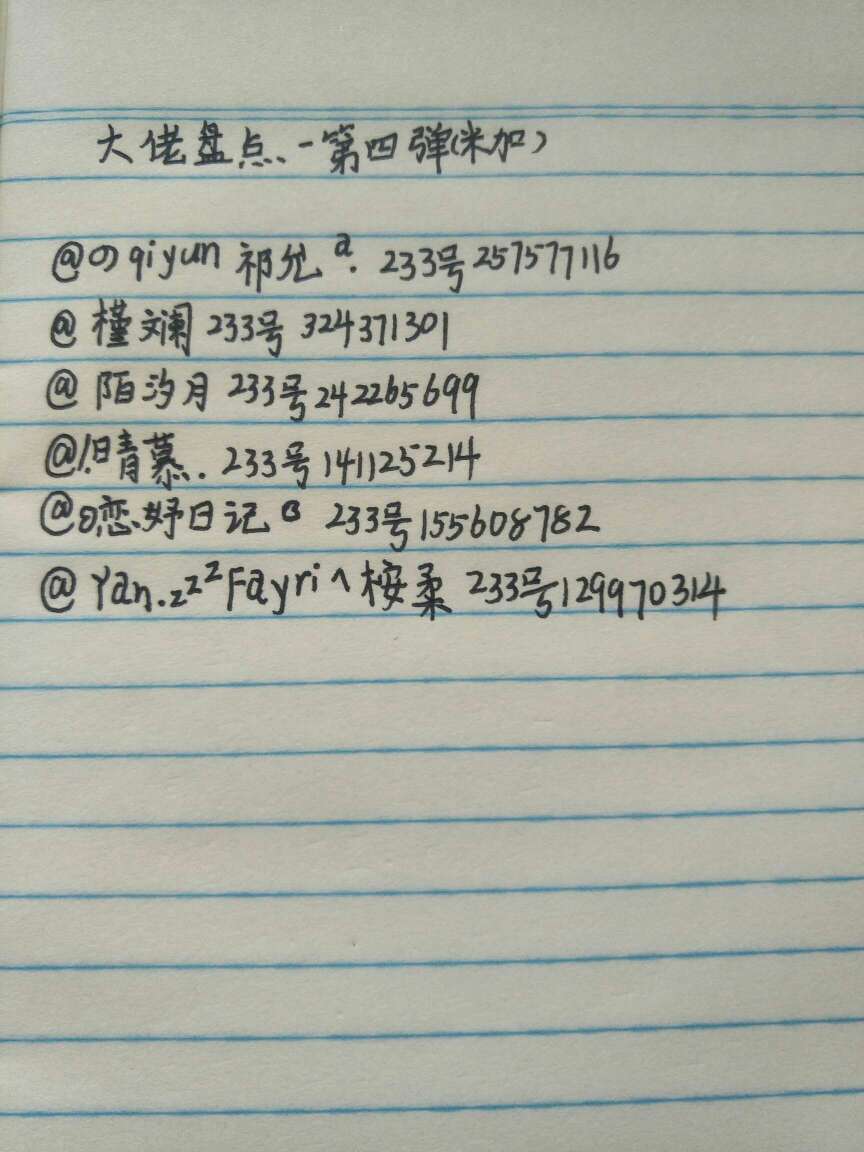 大佬盘点-第四弹(米加)
@のqiyun 祁允a. 233号 257577116
@槿斓 233号 324371301
@陌汐月 233号242265699
@晴慕. 233号141125214
@恋妤日记 233号155608782
@Yan.zzzFayri^桉柔 233号129970314